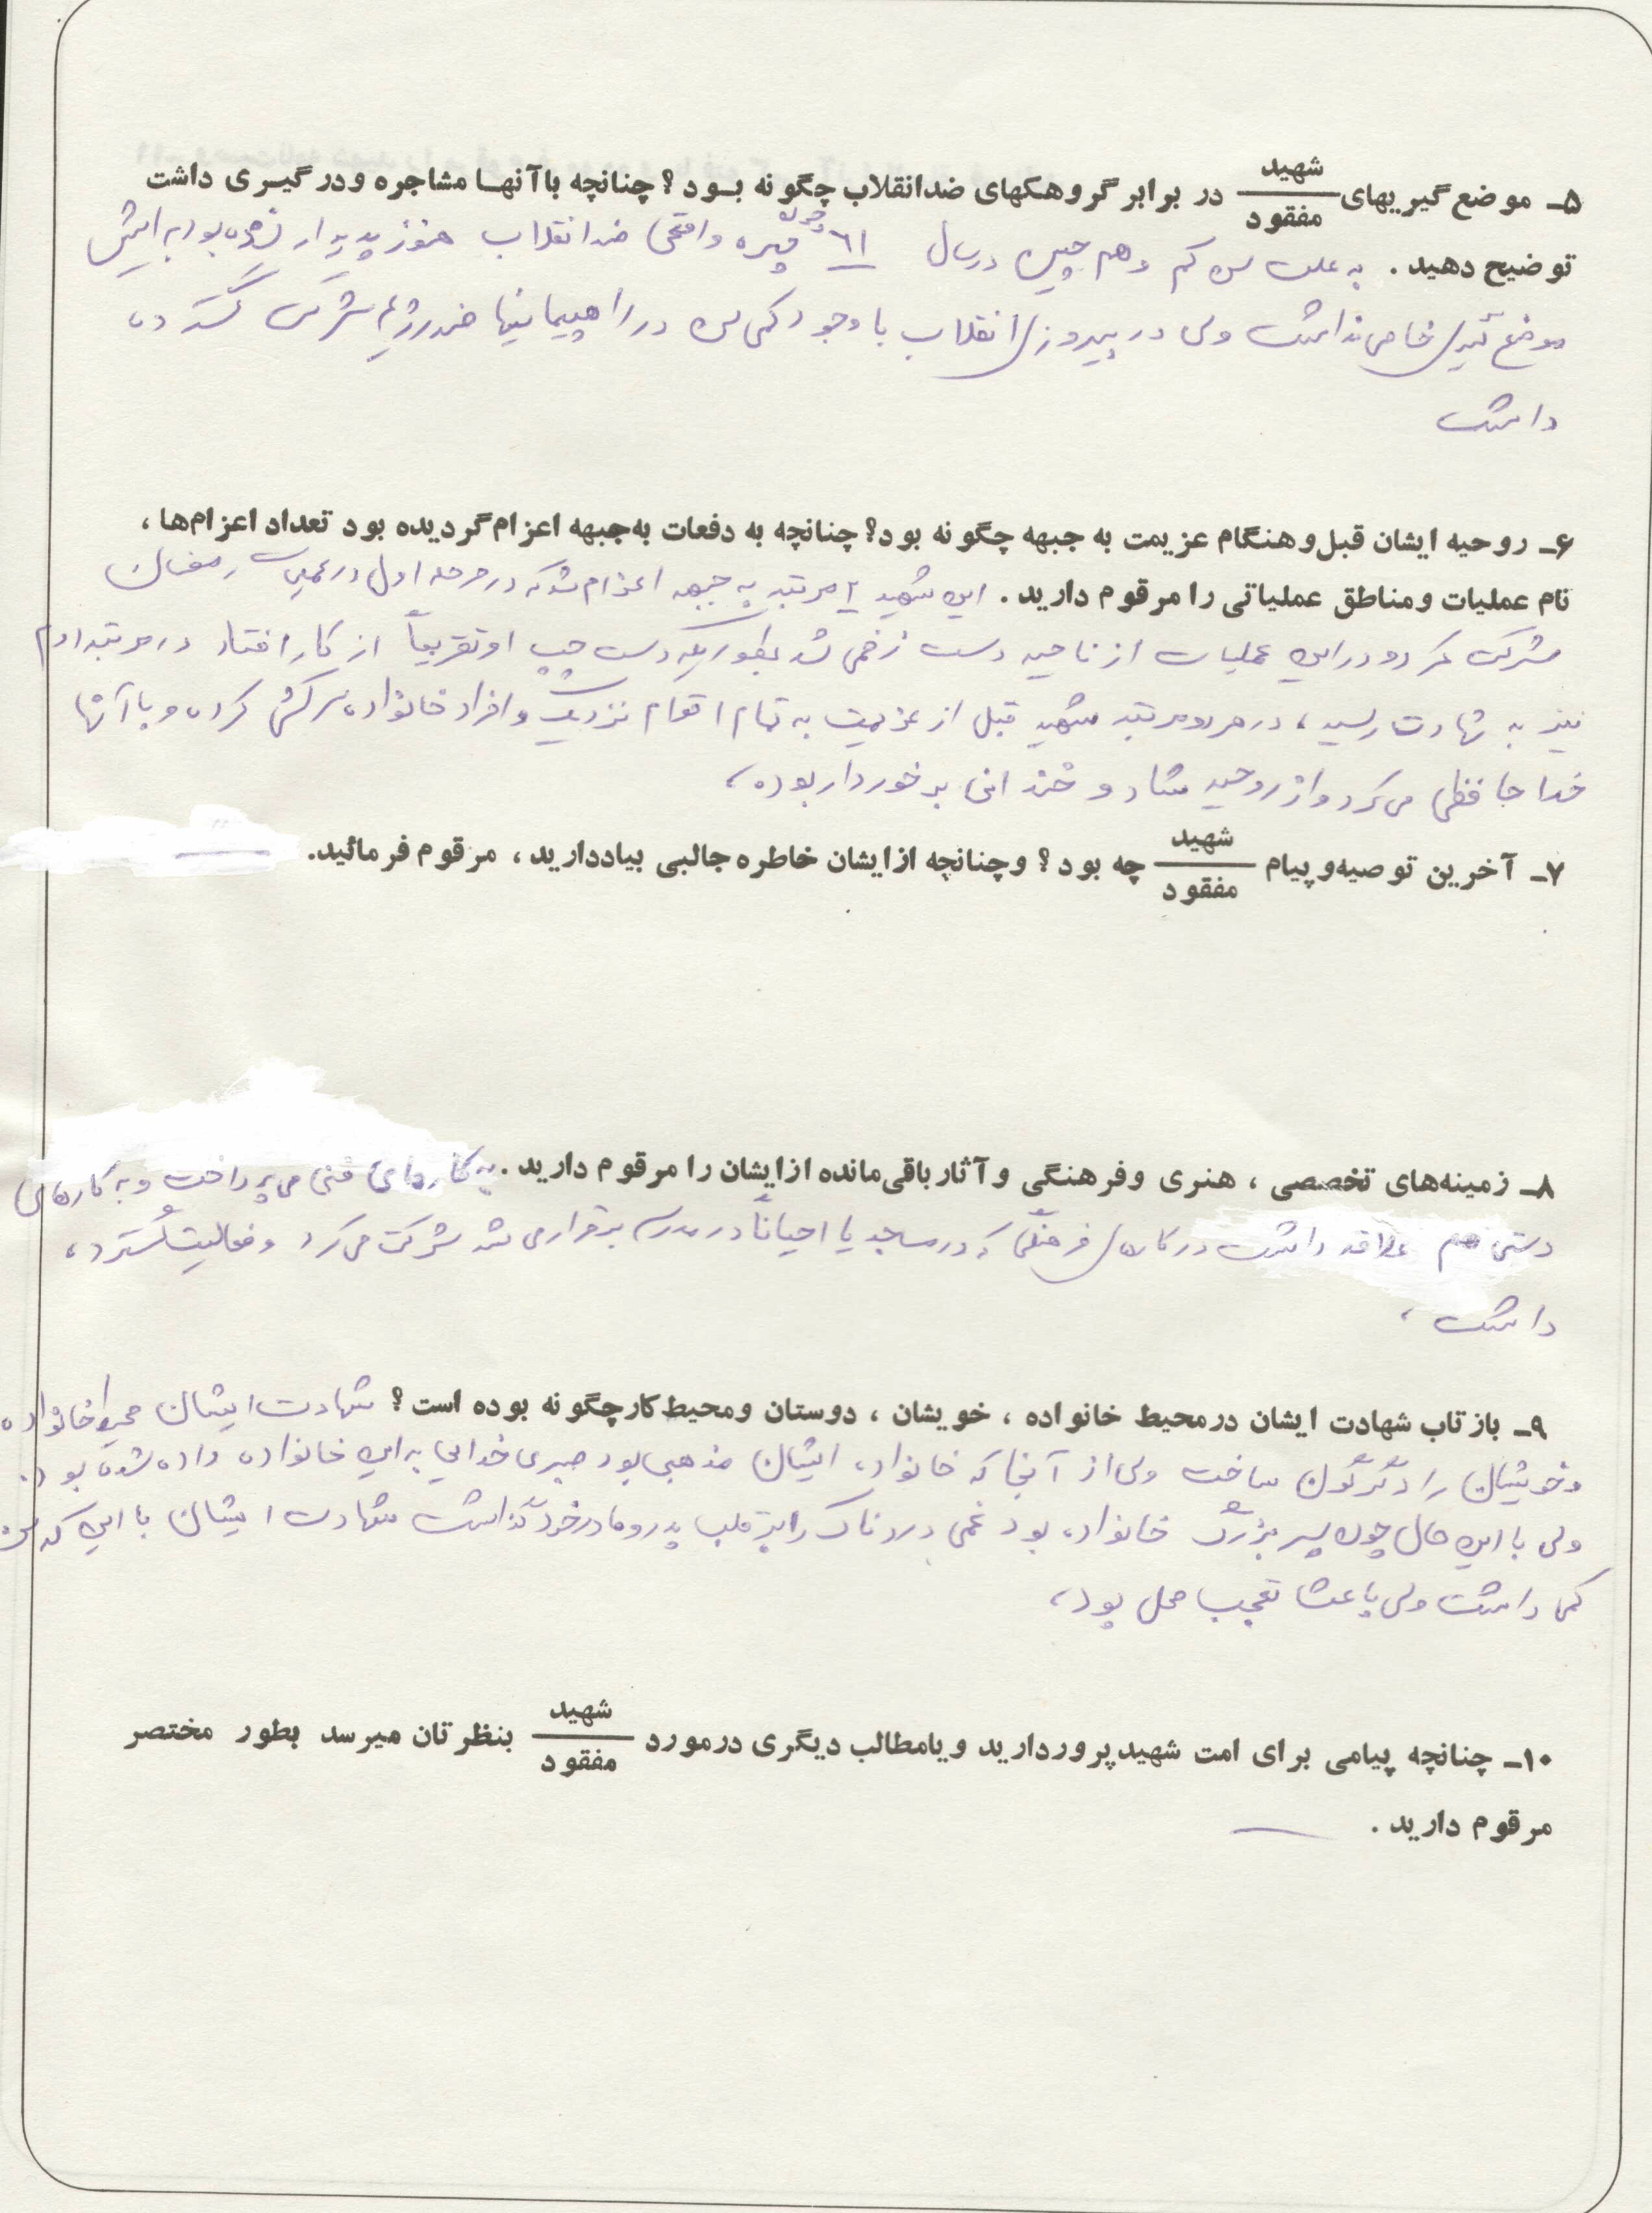 ۵ـ موضع گیریهای شهید / مفقود در برابر گروهکهای ضدانقلاب چگونه بـود ؟ چنانچه باآنهـا مشاجره ودرگیـری داشت
توضیح دهید . به علت سن کم و هم چنین در سال ۶۱ چون چهره واقعی ضد انقلاب هنوز پدیدار نشده بود برایش
موضع گیری خاصی نداشت ولی در پیروزی انقلاب با وجود کمی سن در راهپیمائیها ضد رژیم شرکت گسترده
داشت
۶ـ روحیه ایشان قبل وهنگام عزیمت به جبهه چگونه بود؟ چنانچه به دفعات به‌جبهه اعزام گردیده بود تعداد اعزام‌ها ،
نام عملیات ومناطق عملیاتی را مرقوم دارید . این شهید ۲ مرتبه به جبهه اعزام شد که در مرحله اول در عملیات رمضان
شرکت کرد و در این عملیات از ناحیه دست زخمی شد بطوریکه دست چپ او تقریباً از کار افتاد در مرتبه دوم
نیز به شهادت رسید ، در هر دو مرتبه شهید قبل از عزیمت به تمام اقوام نزدیک و افراد خانواده سرکشی کرده و با آنها
خدا حافظی می کرد و از روحیه شاد و خندانی برخوردار بود ،
۷ـ آخرین توصیه‌وپیام شهید / مفقود چه بود ؟ وچنانچه ازایشان خاطره جالبی بیاددارید ، مرقوم فرمائید.
۸ـ زمینه‌های تخصصی ، هنری وفرهنگی وآثارباقی‌مانده ازایشان را مرقوم دارید . به کارهای فنی می پرداخت و به کارهای
دستی هم علاقه داشت در کارهای فرهنگی که در مساجد یا احیاناً در مدرسه برقرار می شد شرکت می کرد و فعالیت گسترده
داشت ،
۹ـ بازتاب شهادت ایشان درمحیط خانواده ، خویشان ، دوستان ومحیط کارچگونه بوده است ؟ شهادت ایشان محیط خانواده
و خویشان را دگرگون ساخت ولی از آنجا که خانواده ایشان مذهبی بود صبری خدایی به این خانواده داده شده بود .
ولی با این حال چون پسر بزرگ خانواده بود غمی دردناک را بر قلب پدر و مادر خود گذاشت شهادت ایشان با این که سن
کمی داشت ولی باعث تعجب محل بود ،
۱۰ـ چنانچه پیامی برای امت شهیدپروردارید ویامطالب دیگری درمورد شهید / مفقود بنظرتان میرسد بطور مختصر
مرقوم دارید .